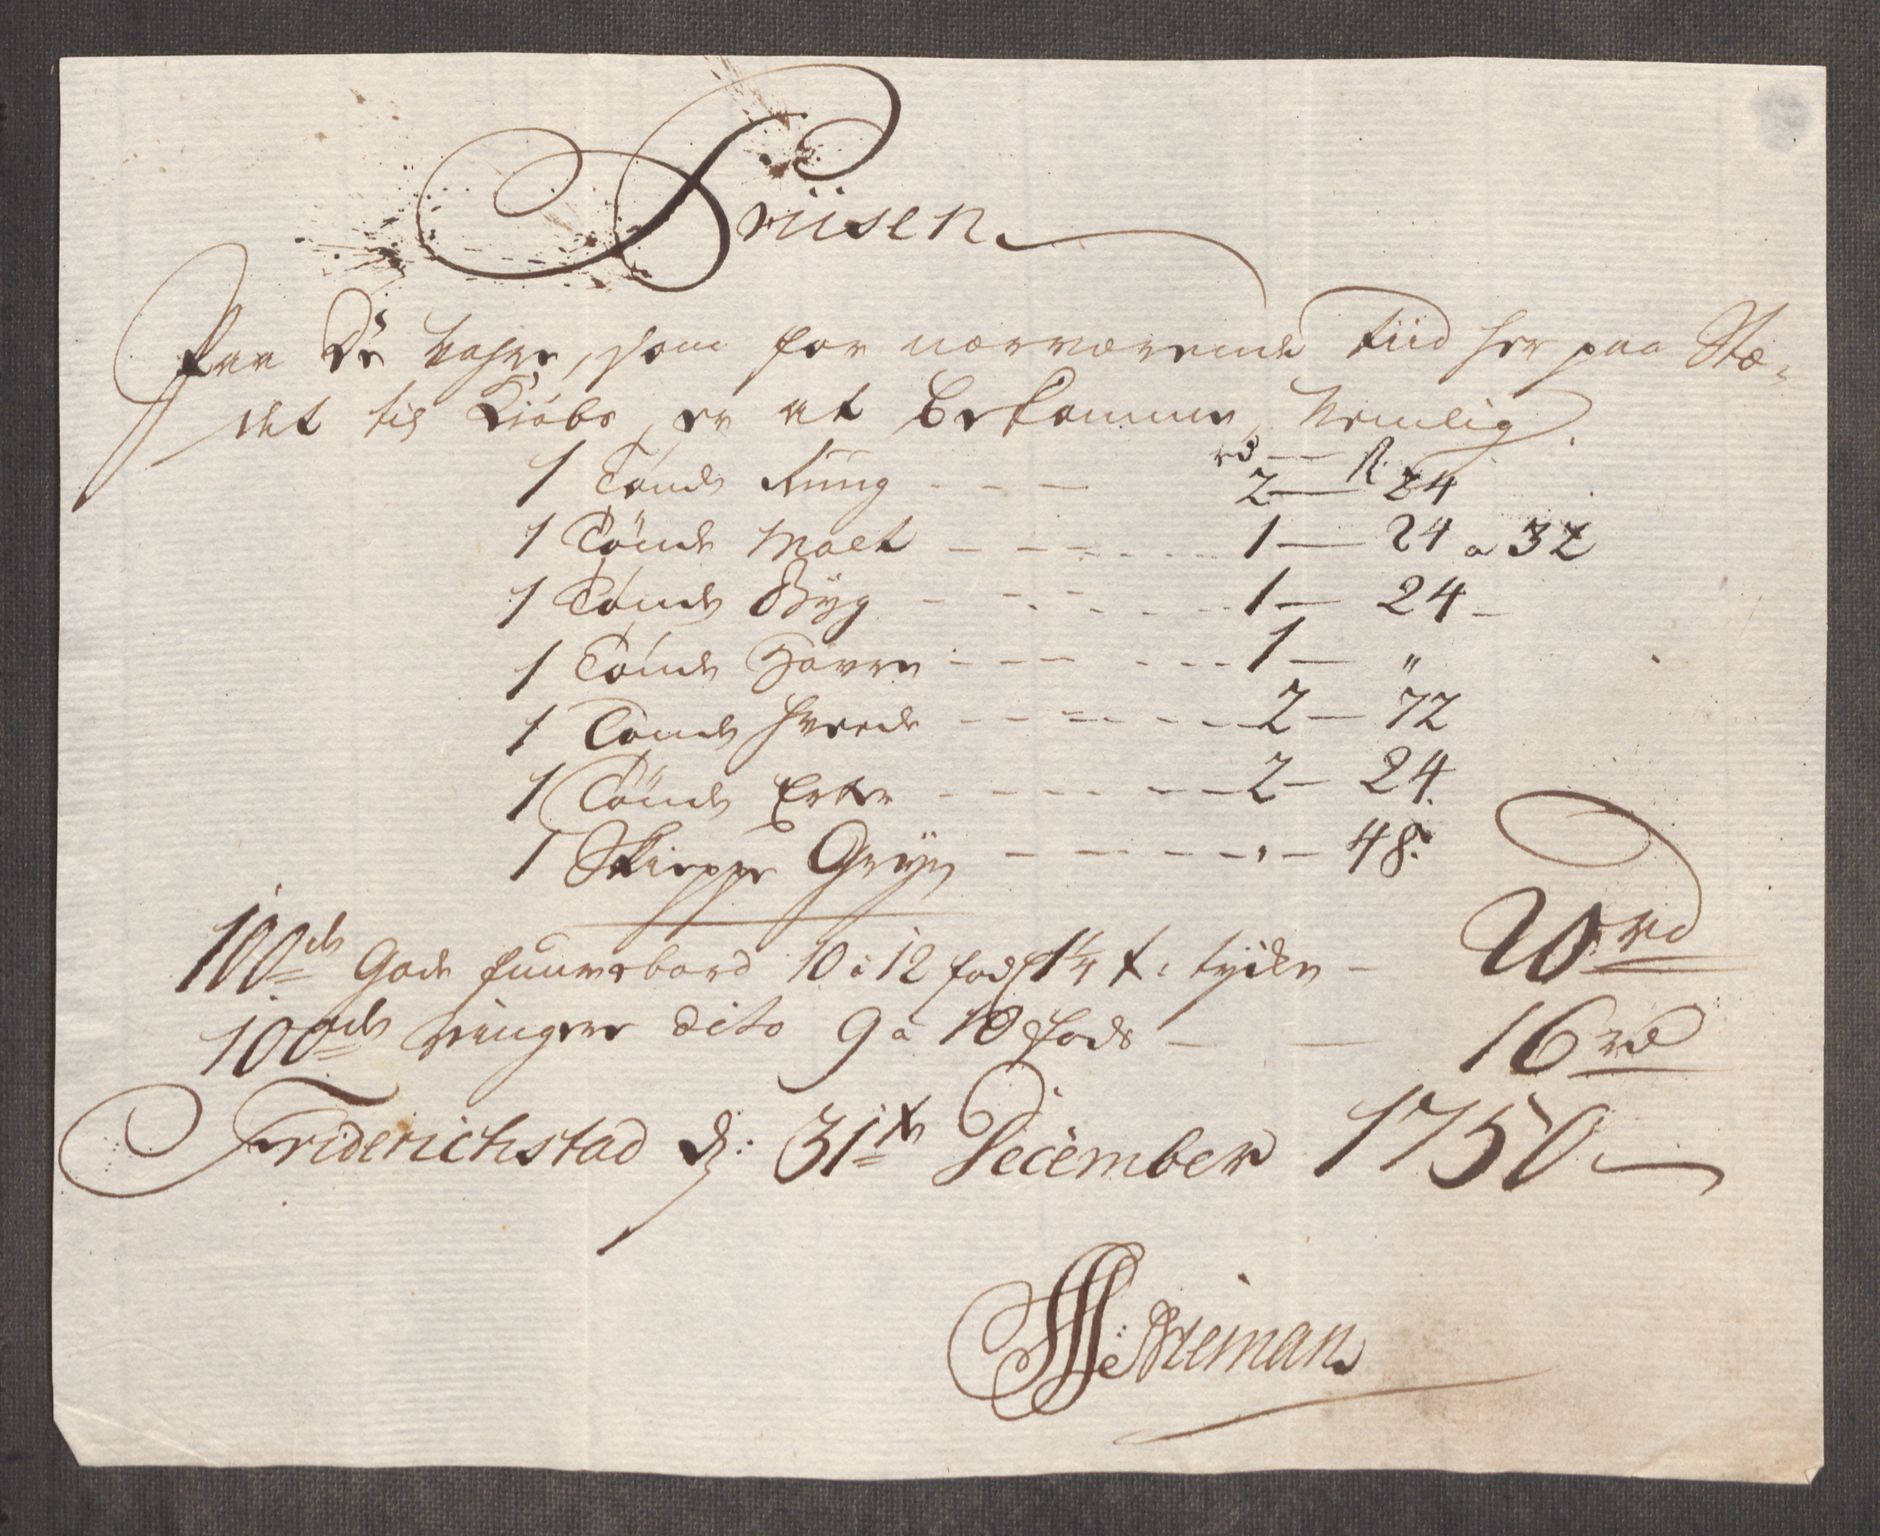 Priisen
Paa De Vahre, som for nærværende Tiid her paa Stæ-
det til Kiøbs, er at bekomme, Nemlig.
rd — ß.
1 Tønde Rung - - - 2 — 24
1 Tønde Malt - - - 1 — 24 a 32
1 Tønde Byg - - - 1 — 24 -
1 Tønde Havre - - - 1 — "
1 Tønde Hvede - - - 2 — 72
1 Tønde Erter - - - 2 — 24.
1 Skieppe Gryn - - - " — 48.
100de Gode fuurebord 10 à 12 fods 1¼ t: tyche - 20 rd
100de ringere dito 9 a 10 fods — — 16 rd
Friderichstad d: 31te December 1750